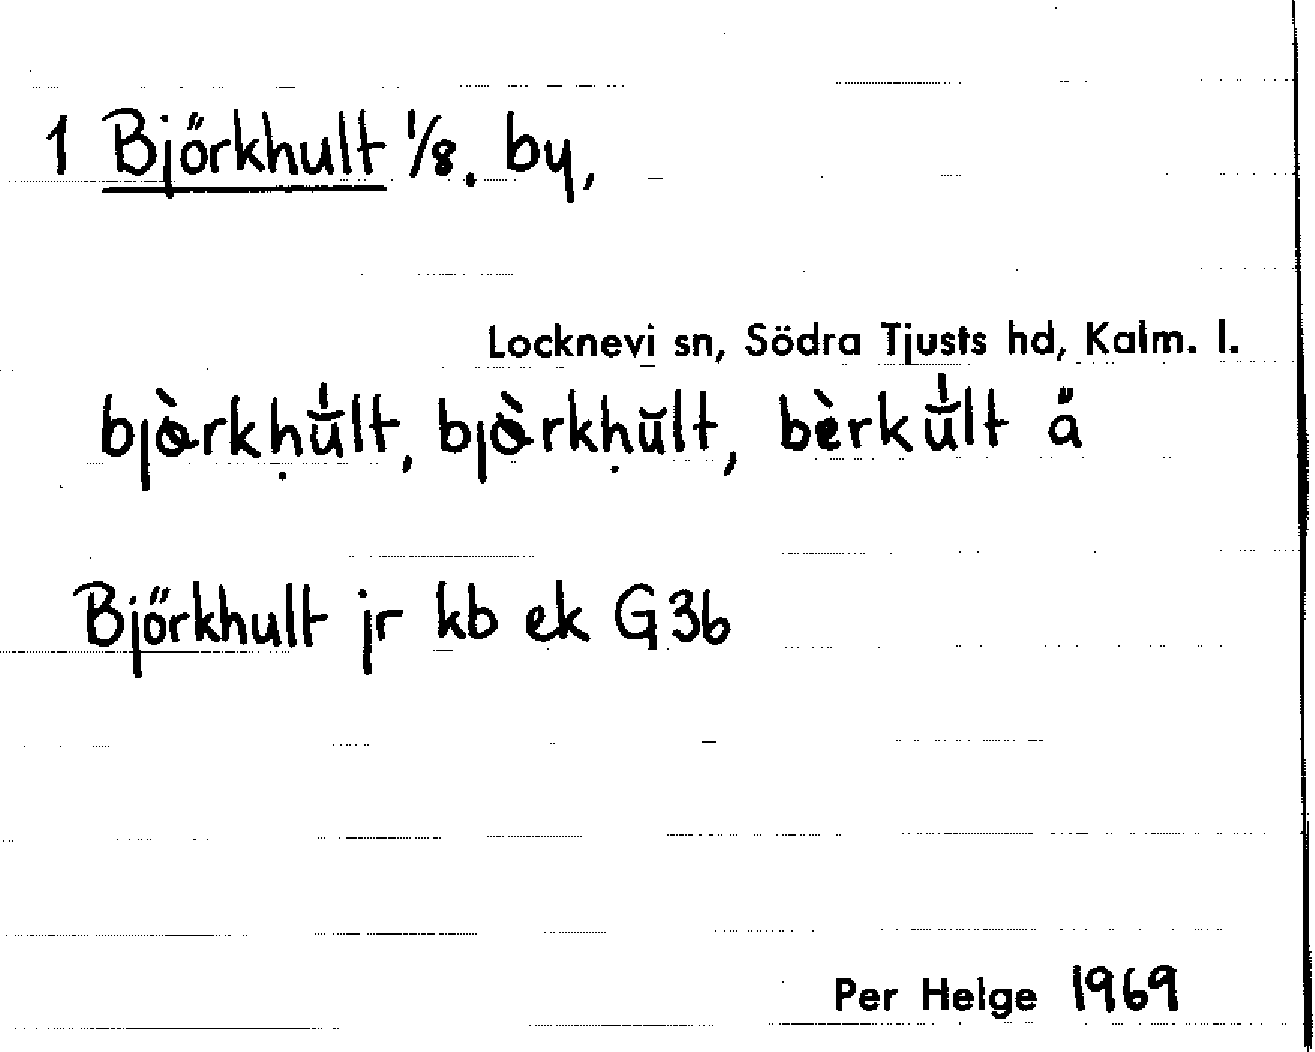 1 Björkhult 1/8. by,
Locknevi sn, Södra Tjusts hd, Kalm. l.
bjɵ̀rkḥu̍̆lt, bjɵ̀rkḥŭlt, bèrku̍̆lt å
Björkhult jr kb ek G3b
Per Helge 1969